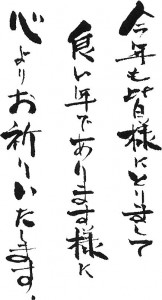 今年も皆様にとりまして
良い年であります様に
心よりお祈りいたします.